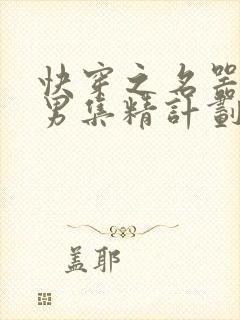 快穿之名器
男集精計劃
蓋耶